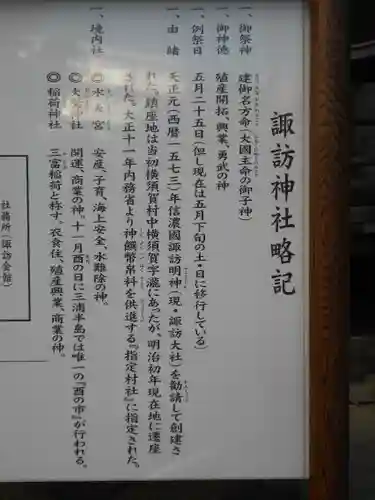 諏訪神社略記
一、御祭神　建御名方命(大國主命の御子神)
一、御神徳　殖産開拓、興業、勇武の神
一、例祭日　五月二十五日(但し現在は五月下旬の土・日に移行している)
一、由緒　天正元(西暦一五七三)年信濃國諏訪明神(現・諏訪大社)を勧請して創建さ
れた。鎮座地は当初横須賀村中横須賀字瀧にあったが、明治初年現在地に遷座
された。大正十一年内務省より神饌幣帛料を供進する『指定村社』に指定された。
一、境内社　◎水天宮　安産、子育、海上安全、水難除の神。
◎大鳥神社　開運、商業の神。十一月酉の日に三浦半島では唯一の『酉の市』が行われる。
◎稲荷神社　三富稲荷と称す。衣食住、殖産興業、商業の神。
社務所(諏訪会館)